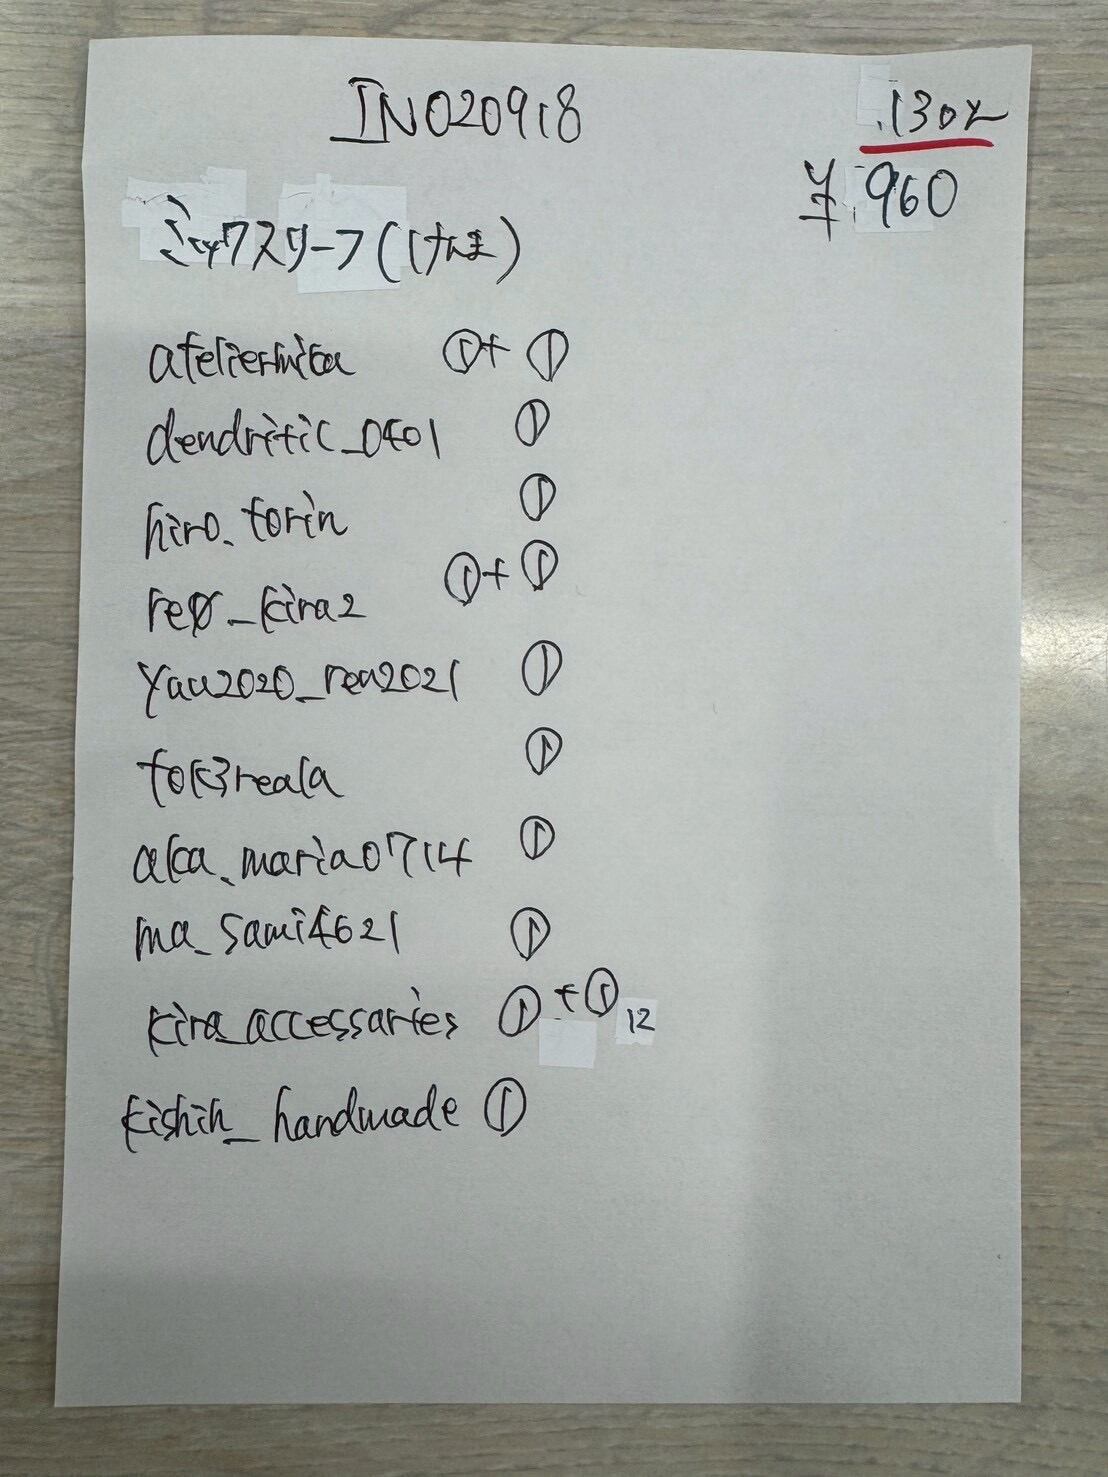 INO20918
130%
¥960
ミックスリーフ(けんま)
ateliermica ①+①
dendritic_0401 ①
hiro.torin ①
①+①
yau2020_rea2021 ①
tok3reala ①
aka.maria0714 ①
ma_sami4621 ①
kira_accessaries ①+① 12
kishih_handmade ①